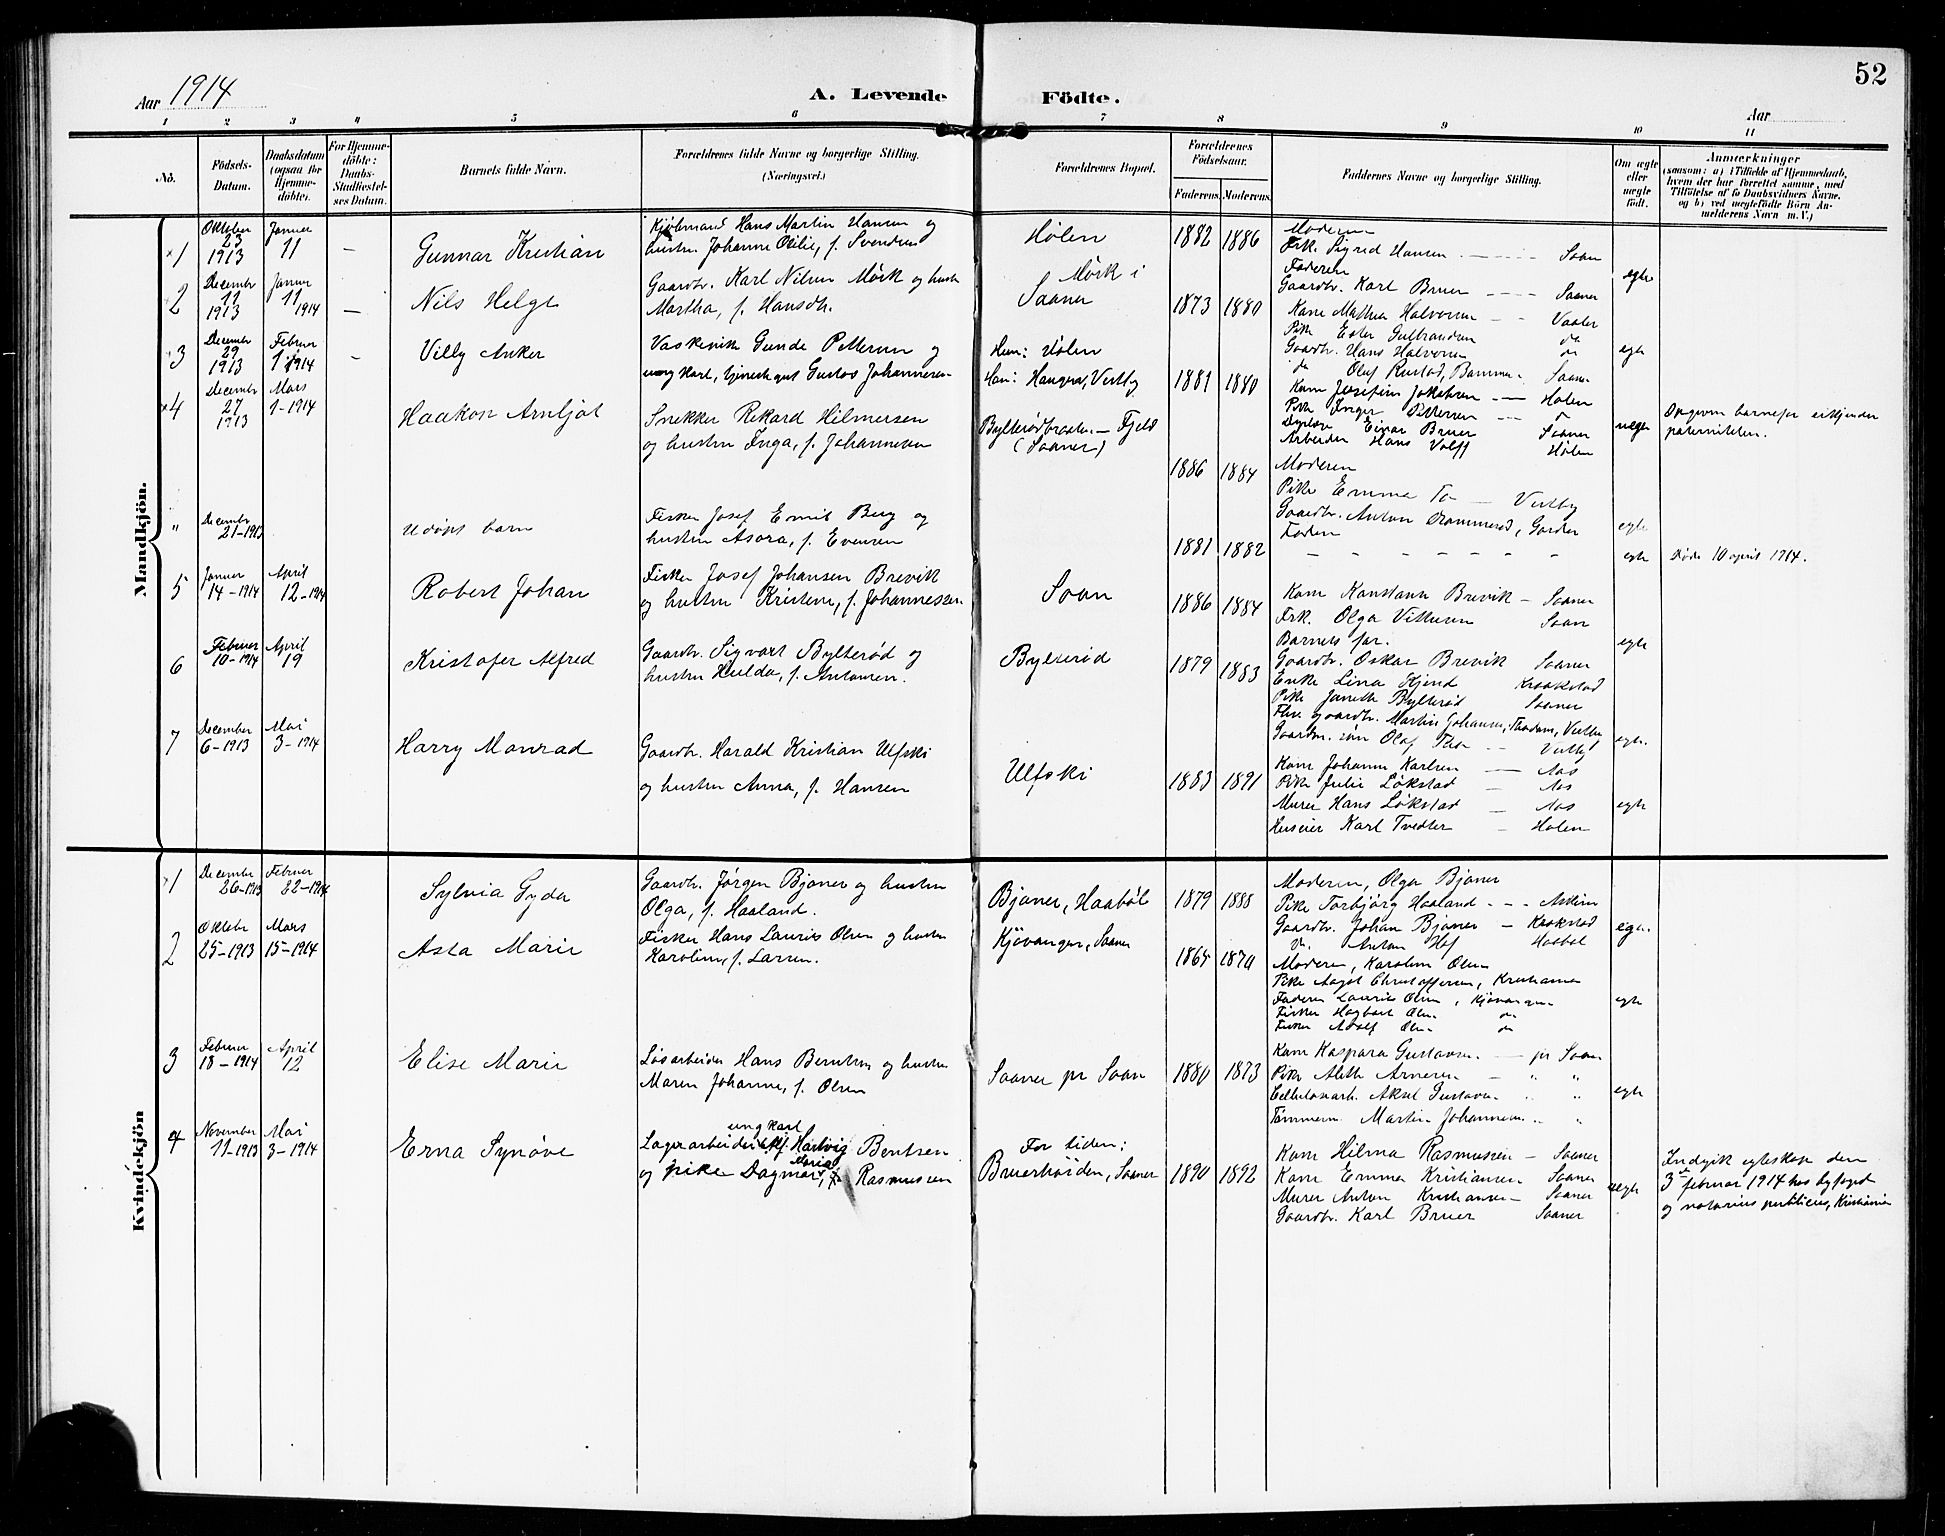 52
Aar 1914
A. Levende Födte.
Aar
1 2 3 4 5 6 7 8 9 10 11
No.
Födsels-Datum.
Daabsdatum (ogsaa for Hjemme-döbte).
For Hjemme-döbte: Daabs-Stadfæstel-ses Datum.
Barnets fulde Navn.
Forældrenes fulde Navne og borgerlige Stilling.
(Næringsvei.)
Forældrenes Bopæl.
Forældrenes Födselsaar.
Faderens. Moderens.
Faddernes Navne og borgerlige Stilling.
Om ægte eller uægte födt.
Anmærkninger
(saasom: a) i Tilfælde af Hjemmedaab, hvem der har forrettet samme, med Tilföielse af to Daabsvidners Navne, og b) ved uægtefödte Börn An-melderens Navn m. V.)
Mandkjön.
1 Oktober 23 1913 Januar 11 – Gunnar Kristian
Kjøbmand Hans Martin Hansen og
hustru Johanne Otilie, f. Svendsen
Hølen 1882 1886
Moderen
Frk. Sigrid Hansen Saan
Faderen
Gaardbr. Karl Bruer Saaner
egte
2 December 11 1913 Januar 11 1914 – Nils Helge
Gaardbr. Karl Nilsen Mørk og hustr
Martha, f. Hansdtr.
Mørk i
Saaner 1873 1880
Kone Mathea Halvorsen Vaaler
Pike Ester Gulbrandsen do
Gaardbr. Hans Halvorsen do
do Olaf Rustad, Saaner
egte
3 December 29 1913 Februar 1 1914 – Villy Anker
Vaskerike Gunda Pettersen og
ungkarl, tjenestegut Gustav Johannesen
Hun: Hølen
Han: Haugen, Vestby 1881 1880
Kone Josefine Jakobsen Hølen
Pike Inger Pettersen
Einar Bruer Saaner
Arbeider Hans Volff Hølen
uegte
Opgiven barnefar erkjender
paterniteten.
4 December 27 1913 Mars 1-1914 Haakon Arnljot
Snekker Rikard Hilmersen
og hustru Inga, f. Johannesen
Bylterødbraaten – Fjeld
(Saaner) 1886 1884
Moderen
Pike Emma To – Vestby
Gaardbr. Anton Grommerød, Garder
Faderen
egte
" December 21-1913 Udøpt barn
Fisker Josef Emil Berg og
hustru Asora, f. Evensen
1881 1882 – – – – – – –
egte Døde 10 april 1914.
5 Januar 14-1914 April 12-1914 Robert Johan
Fisker Josef Johansen Brevik
og hustru Kristine, f. Johannessen
Soon 1886 1884
Kone Konstanse Brevik – Saaner
Frk. Olga Villersen Saan
Barnets far.
Gaardbr. Oskar Brevik Saaner
egte
6 Februar 10-1914 April 19 Kristofer Alfred
Gaardbr. Sigvart Bylterød og
hustru Hulda, f. Antonsen.
Bylterød 1879 1883
Enke Lina Kjend Kraakstad
Pike Janette Bylterød Saaner
Fhv. gaardbr. Martin Johansen, Vestby
Gaardbr. søn Olaf Thon – Vestby
egte.
7 December 6-1913 Mai 3-1914 Harry Monrad
Gaardbr. Harald Kristian Ulfski
og hustru Anna, f. Hansen
Ulfski 1883 1891
Kone Johanne Karlsen – Aas
Pike Julie Løkstad – Aas
Murer Hans Løkstad – Aas
Huseier Karl Tvedter – Hølen
egte
Kvindekjön
1 December 26-1913 Februar 22-1914 Sylvia Gyda
Gaardbr. Jørgen Bjaner og hustru
Olga, f. Haaland.
Bjaner, Haabøl 1879 1888
Moderen, Olga Bjaner
Pike Torbjørg Haaland – – – Askim
Gaardbr. Johan Bjaner – Kraakstad
do. Anton Hof Haabøl
egte.
2 Oktober 25-1913 Mars 15-1914 Asta Marie
Fisker Hans Laurits Olsen og hustru
Karoline, f. Larsen.
Kjøvangen, Saaner 1865 1870
Moderen, Karoline Olsen
Pike Aagot Christoffersen, Kristiania
Faderen Laurits Olsen, Kjøvangen
Fisker Hagbart Olsen do
Fisker Adolf Olsen do
egte
3 Februar 18-1914 April 12 Elise Marie
Løsarbeider Hans Berntsen og hustru
Maren Johanne, f. Olsen
Saaner pr Soon 1880 1873
Kone Kaspara Gustavsen – pr Soon
Pike Aleth Arnesen – " "
Cellulosearb. Aksel Gustavsen " "
Tømmerm. Martin Johannesen " "
egte
4 November 11-1913 Mai 3-1914 Erna Synøve
ungkarl
Lagerarbeider Alf. Hartvig Berntsen
og pike Dagmar Marie Rasmussen
For tiden:
Bruerhøiden, Saaner 1890 1892
Kone Hilma Rasmussen – Saaner
Kone Emma Kristiansen Saaner
Murer Anton Kristiansen – Saaner
Gaardbr. Karl Bruer Saaner
uegte
Indgik egteskap den
3 februar 1914 hos byfoged
og notarius publicus, Kristiania